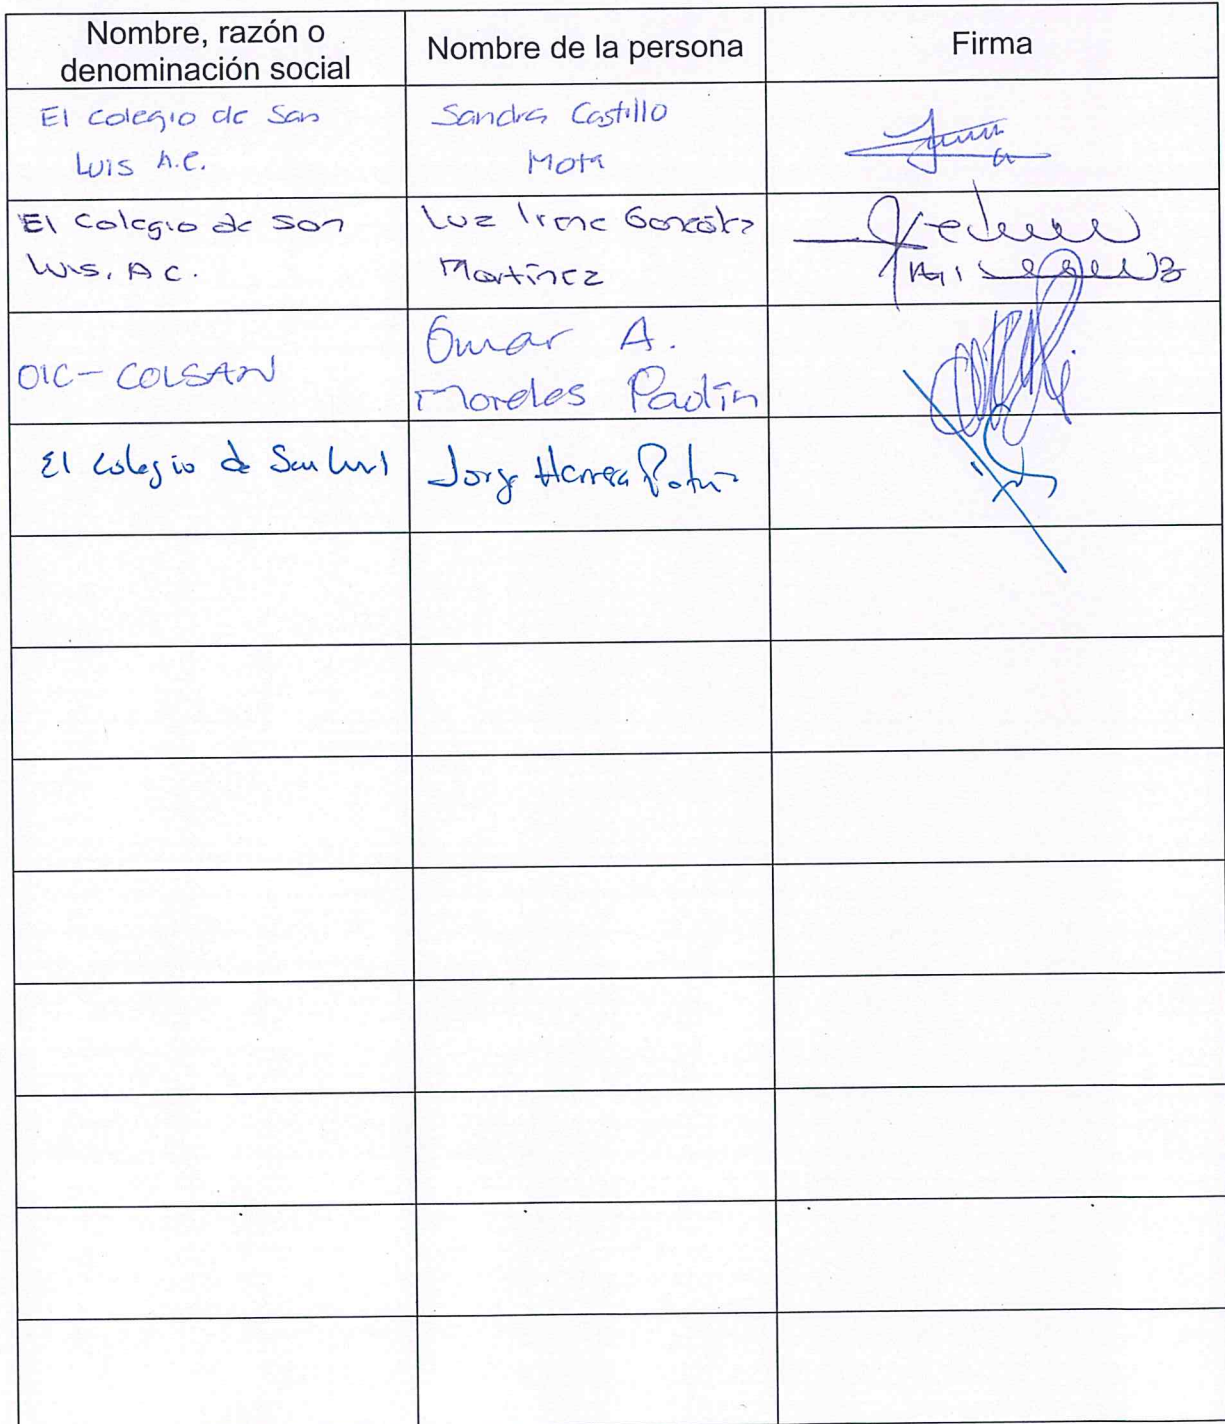 Nombre, razón o
denominación social
Nombre de la persona
Firma
El Colegio de San
Luis A.C.
Sandra Castillo
Mota
El Colegio de San
Luis, A C.
Luz Irene González
Martínez
OIC - COLSAN
Omar A.
Morales Padín
El Colegio de San Luis
Jorge Herrera